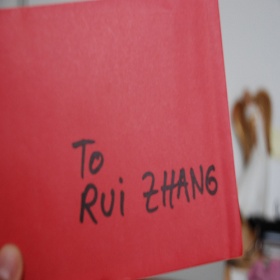 To
Rui ZHANG